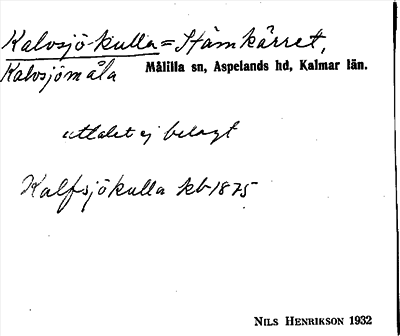 Kalvsjö-kulla = Stämkärret,
Kalvsjömåla Målilla sn, Aspelands hd, Kalmar län.
uttalet ej belagt
Kalfsjökulla kb 1875
NILS HENRIKSON 1932